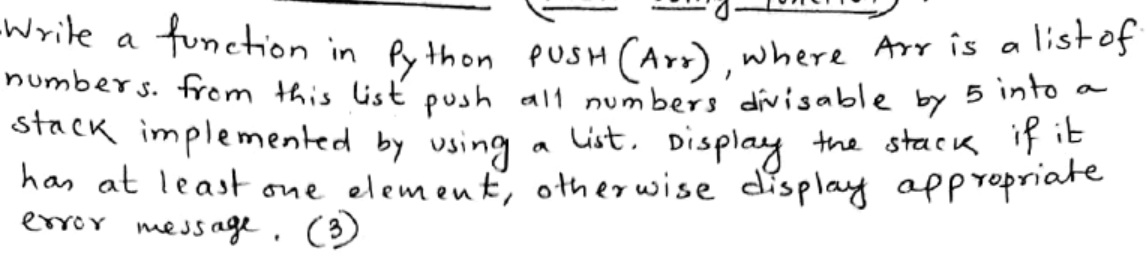 Write a function in Python PUSH (Arr), where Arr is a list of
numbers. from this list push all numbers divisable by 5 into a
stack implemented by using a list. Display the stack if it
has at least one element, otherwise display appropriate
error message. (3)